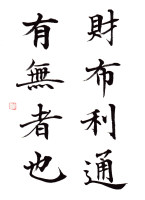 財布利通
有無者也